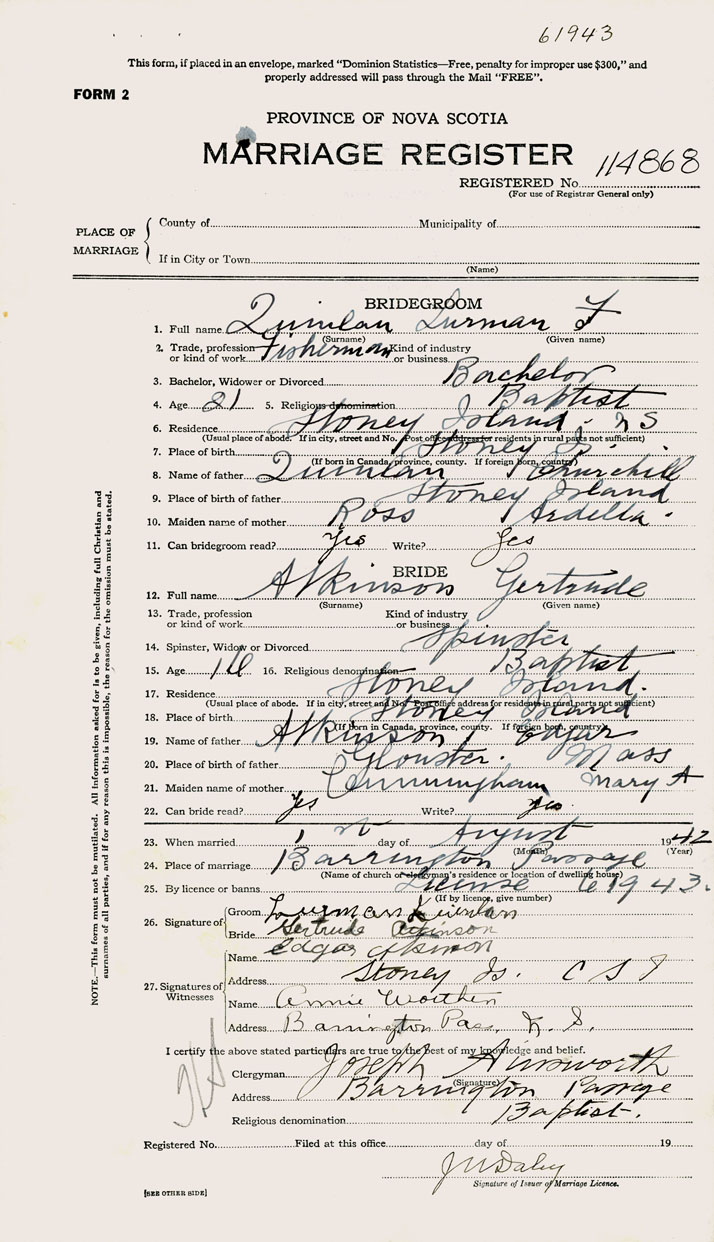 61943
This form, if placed in an envelope, marked "Dominion Statistics—Free, penalty for improper use $300," and
properly addressed will pass through the Mail "FREE".
FORM 2
PROVINCE OF NOVA SCOTIA
MARRIAGE REGISTER 114868
REGISTERED No.
(For use of Registrar General only)
PLACE OF MARRIAGE
County of Municipality of
If in City or Town
(Name)
BRIDEGROOM
1. Full name Quinlan Lurman F
(Surname) (Given name)
2. Trade, profession or kind of work Fisherman Kind of industry or business
3. Bachelor, Widower or Divorced Bachelor
4. Age 21 5. Religious denomination Baptist
6. Residence Stoney Island. N S
(Usual place of abode. If in city, street and No. Post office address for residents in rural parts not sufficient)
7. Place of birth Stoney Is.
(If born in Canada, province, county. If foreign born, country)
8. Name of father Quinlan Churchill
9. Place of birth of father Stoney Island
10. Maiden name of mother Ross Ardella
11. Can bridegroom read? Yes Write? Yes
BRIDE
12. Full name Atkinson Gertrude
(Surname) (Given name)
13. Trade, profession or kind of work Kind of industry or business
14. Spinster, Widow or Divorced Spinster
15. Age 16. Religious denomination Baptist
17. Residence Stoney Island.
(Usual place of abode. If in city, street and No. Post office address for residents in rural parts not sufficient)
18. Place of birth Stoney Island
(If born in Canada, province, county. If foreign born, country)
19. Name of father Atkinson Edgar
20. Place of birth of father Glouster. Mass
21. Maiden name of mother Cunningham Mary A
22. Can bride read? Yes Write? Yes
23. When married 1 st day of August 1942
(Month) (Year)
24. Place of marriage Barrington Passage
(Name of church or clergyman's residence or location of dwelling house)
25. By licence or banns License 61943.
(If by licence, give number)
26. Signature of
Groom Lurman Quinlan
Bride Gertrude Atkinson
27. Signatures of Witnesses
Name Edgar Atkinson
Address Stoney Is. C S I
Name Annie Worthen
Address Barrington Pass, N. S.
I certify the above stated particulars are true to the best of my knowledge and belief.
Clergyman Joseph Ainsworth
(Signature)
Address Barrington Passage
Religious denomination Baptist.
Registered No. Filed at this office day of 19
Signature of Issuer of Marriage Licence.
[SEE OTHER SIDE]
NOTE.—This form must not be mutilated. All information asked for is to be given, including full Christian and
surnames of all parties, and if for any reason this is impossible, the reason for the omission must be stated.